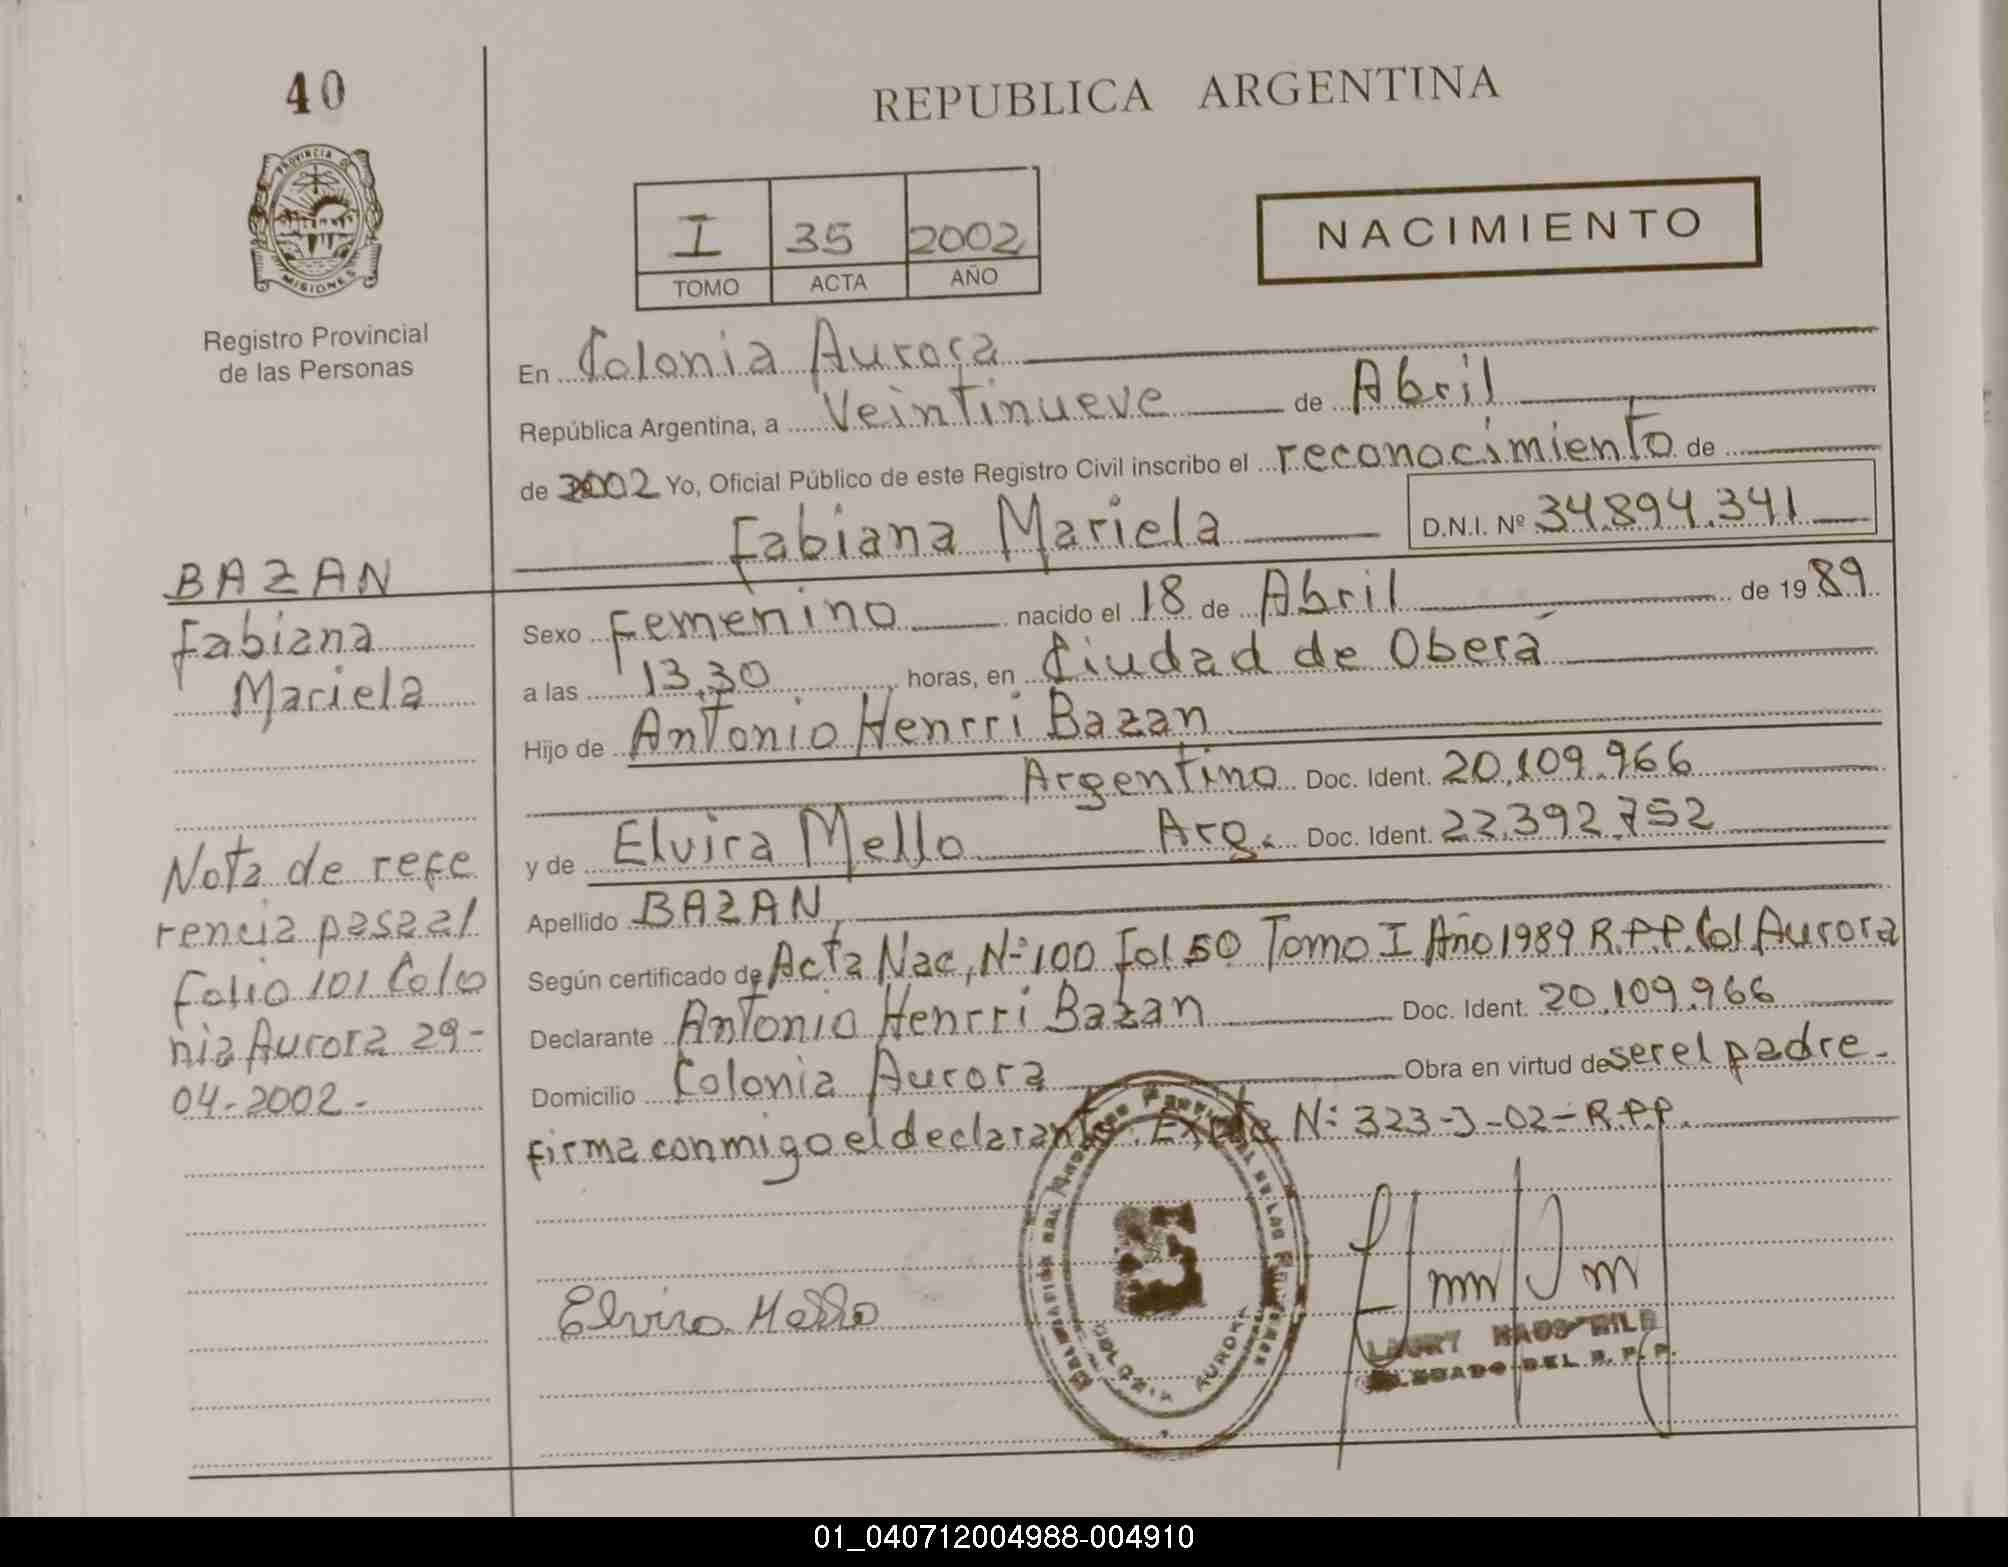 40
PROVINCIA DE
MISIONES
Registro Provincial
de las Personas
REPUBLICA ARGENTINA
I 35 2002
TOMO ACTA AÑO
NACIMIENTO
En Colonia Aurora
República Argentina, a Veintinueve de Abril
de 2002 Yo, Oficial Público de este Registro Civil inscribo el reconocimiento de
Fabiana Mariela D.N.I. Nº 34.894.341
BAZAN
Fabiana
Mariela
Sexo Femenino nacido el 18 de Abril de 1989
a las 13,30 horas, en Ciudad de Oberá
Hijo de Antonio Henrri Bazan
Argentino Doc. Ident. 20.109.966
y de Elvira Mello Arg. Doc. Ident. 22.392.752
Apellido BAZAN,
Según certificado de Acta Nac, Nº 100 Fol 50 Tomo I Año 1989 R.P.P. Col Aurora
Declarante Antonio Henrri Bazan Doc. Ident. 20.109.966
Domicilio Colonia Aurora Obra en virtud de ser el padre.
firma conmigo el declarante. Expte Nº 323-J-02-R.P.P.
Nota de refe
rencia pasa al
folio 101 Colo
nia Aurora 29-
04-2002-
Elvira Mello
COLONIA AURORA
DELEGADO DEL R.P.P.
01_040712004988-004910